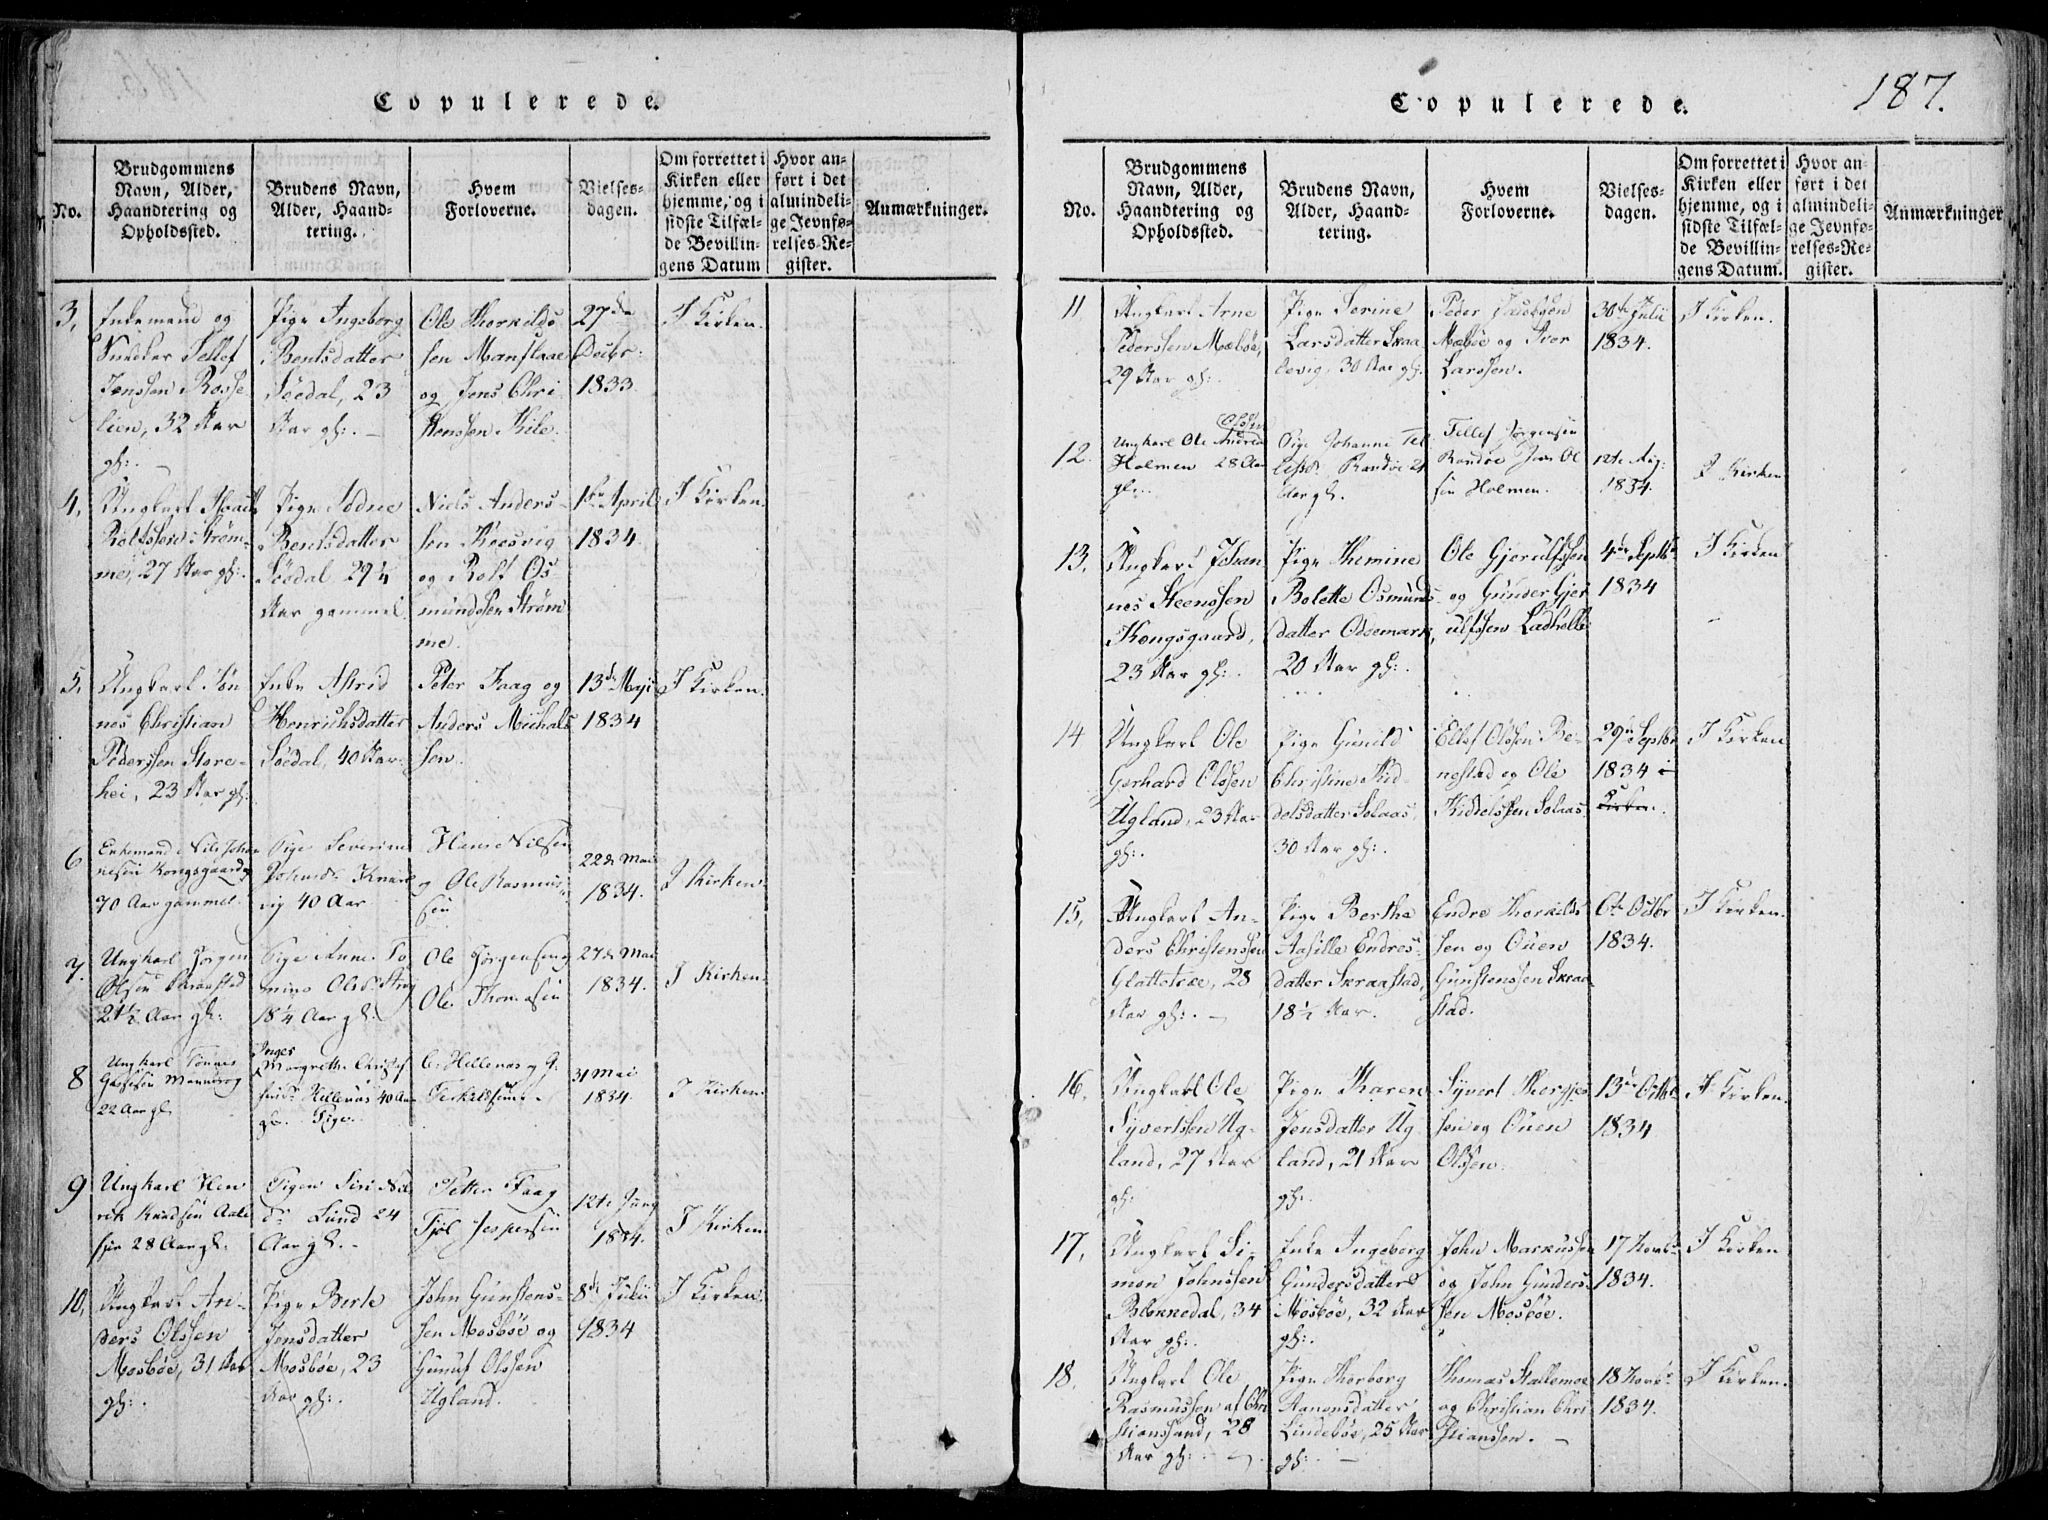 Copulerede.
No.
Brudgommens
Navn, Alder,
Haandtering og
Opholdssted.
Brudens Navn,
Alder, Haand-
tering.
Hvem
Forloverne.
Vielses-
dagen.
Om forrettet i
Kirken eller
hjemme, og i
sidste Tilfæl-
de Bevillin-
gens Datum
Hvor an-
ført i det
almindeli-
ge Jevnfø-
relses-Re-
gister.
Anmærkninger.
3,
Enkemand og
Snedker Tellef
Jenssen Rosse
lien, 32 Aar
gl:.
Pige Ingeborg
Bentsdatter
Söedal, 23
Aar gl:.
Ole Thorkilds
sen
og Jens Chri
stenssen Kile.
27de
Decbr.
1833.
I Kirken.
4,
Ungkarl
Rolfssen Strøm-
me, 27 Aar gl:.
Pige
Bentsdatter
Söedal 29¼
Aar gammel.
Niels Anders-
sen
og Rolf Os-
mundssen Strøm
me.
1ste April
1834.
I Kirken.
5,
Ungkarl Tøn
nes Christian
Pederssen Store-
hei, 23 Aar gl:.
Enke Astrid
Henrichsdatter
Söedal, 40 Aar.
Peter Faag og
Anders Michals
sen.
13de Maji
1834
I Kirken.
6
Enkemand Nils Johan
nesen Kongsgaard
70 Aar gammel.
Pige Severine
vig 40 Aar
Hans Nilsen
og Ole Rasmus
sen
22de Mai
1834.
I Kirken.
7.
Ungkarl Jørgen
Olsen
21½ Aar gl:
Pige Anne To
mine
18¼ Aar gl:
Ole Jørgensen og
Ole Thomasen
27de Mai
1834.
I Kirken.
8
Ungkarl Tønnes
22 Aar gl.
Inger
Margrethe
Hellenas 40 Aar
gl. Pige.
Hellenas og
31 Mai
1834.
I Kirken.
9
Ungkarl Hen
rik Knudsen
28 Aar gl.
Pigen Siri
Lund 24
Aar gl.
Petter Faag
Jespersen
12te Juny
1834.
I Kirken
10,
Ungkarl An-
ders Olssen
Mosböe, 31 Aar
gl:.
Pige Berte
Jensdatter
Mosböe, 23
Aar gl:.
John Gunstens-
sen Mosböe og
Gunuf Olssen
Ugland.
8de Julii
1834
I Kirken.
Copulerede.
187.
No.
Brudgommens
Navn, Alder,
Haandtering og
Opholdssted.
Brudens Navn,
Alder, Haand-
tering.
Hvem
Forloverne.
Vielses-
dagen.
Om forrettet i
Kirken eller
hjemme, og i
sidste Tilfæl-
de Bevillin-
gens Datum.
Hvor an-
ført i det
almindeli-
ge Jevnfø-
relses-Re-
gister.
Anmærkninger
11
Ungkarl Arne
Pederssen Mæböe,
29 Aar gl:.
Pige Serine
Larsdatter Skaa
levig, 30 Aar gl:.
Peder Jacobsen
Mæböe og Iver
Larssen.
30te Julii
1834.
I Kirken.
12.
Ungkarl Ole Andreas
Holmen 28 Aar
gl:.
Pige Johanne Tel
Randöe 21
Aar gl.
Tellef Jørgensen
Randöe Ol
sen Holmen.
12te Aug:
1834.
I Kirken
13,
Ungkarl Johan
nes Steenssen
Kongsgaard,
23 Aar gl:.
Pige Themine
Bolette Osmunds-
datter Oddemark,
20 Aar gl:.
Ole Gjerulfssen
og Gunder Gjer
ulfssen Ladhelle
4de Septbr
1834
I Kirken
14
Ungkarl Ole
Gerhard Olssen
Ugland, 23 Aar
gl:.
Pige Gunild
Christine Kid-
delsdatter Solaas,
30 Aar gl:.
Ellef Olssen Be-
nestad og Ole
Kiddelssen Solaas.
29de Septbr
1834 i
Kirken.
I Kirken
15,
Ungkarl An-
ders Christenssen
Glattetræ, 28
Aar gl:.
Pige Berthe
Aasille Endres-
datter Skraastad,
18½ Aar.
Endre Thorkilds
sen og Ouen
Gunstenssen Skraa-
stad.
6te Octbr
1834.
I Kirken.
16,
Ungkarl Ole
Syvertssen Ug-
land, 27 Aar
gl:
Pige Karen
Jensdatter Ug
land, 21 Aar
gl:.
Syvert Therjes
sen og Ouen
Olssen.
13de Octbr
1834
I Kirken.
17,
Ungkarl Si-
mon Johnssen
Blønnedal, 34
Aar gl:.
Enke Ingeborg
Gundersdatter
Mosböe, 32 Aar
gl:.
John Markussen
og John Gunders-
sen Mosböe.
17 Novbr
1834.
I Kirken
18.
Ungkarl Ole
Rasmussen af Chri
stianssand, 28
Aar gl:.
Pige Thorborg
Aanensdatter
Lindeböe, 25 Aar
gl:.
Thomas Stallemoe
og Christian Chri
stianssen.
18 Novbr
1834.
I Kirken.